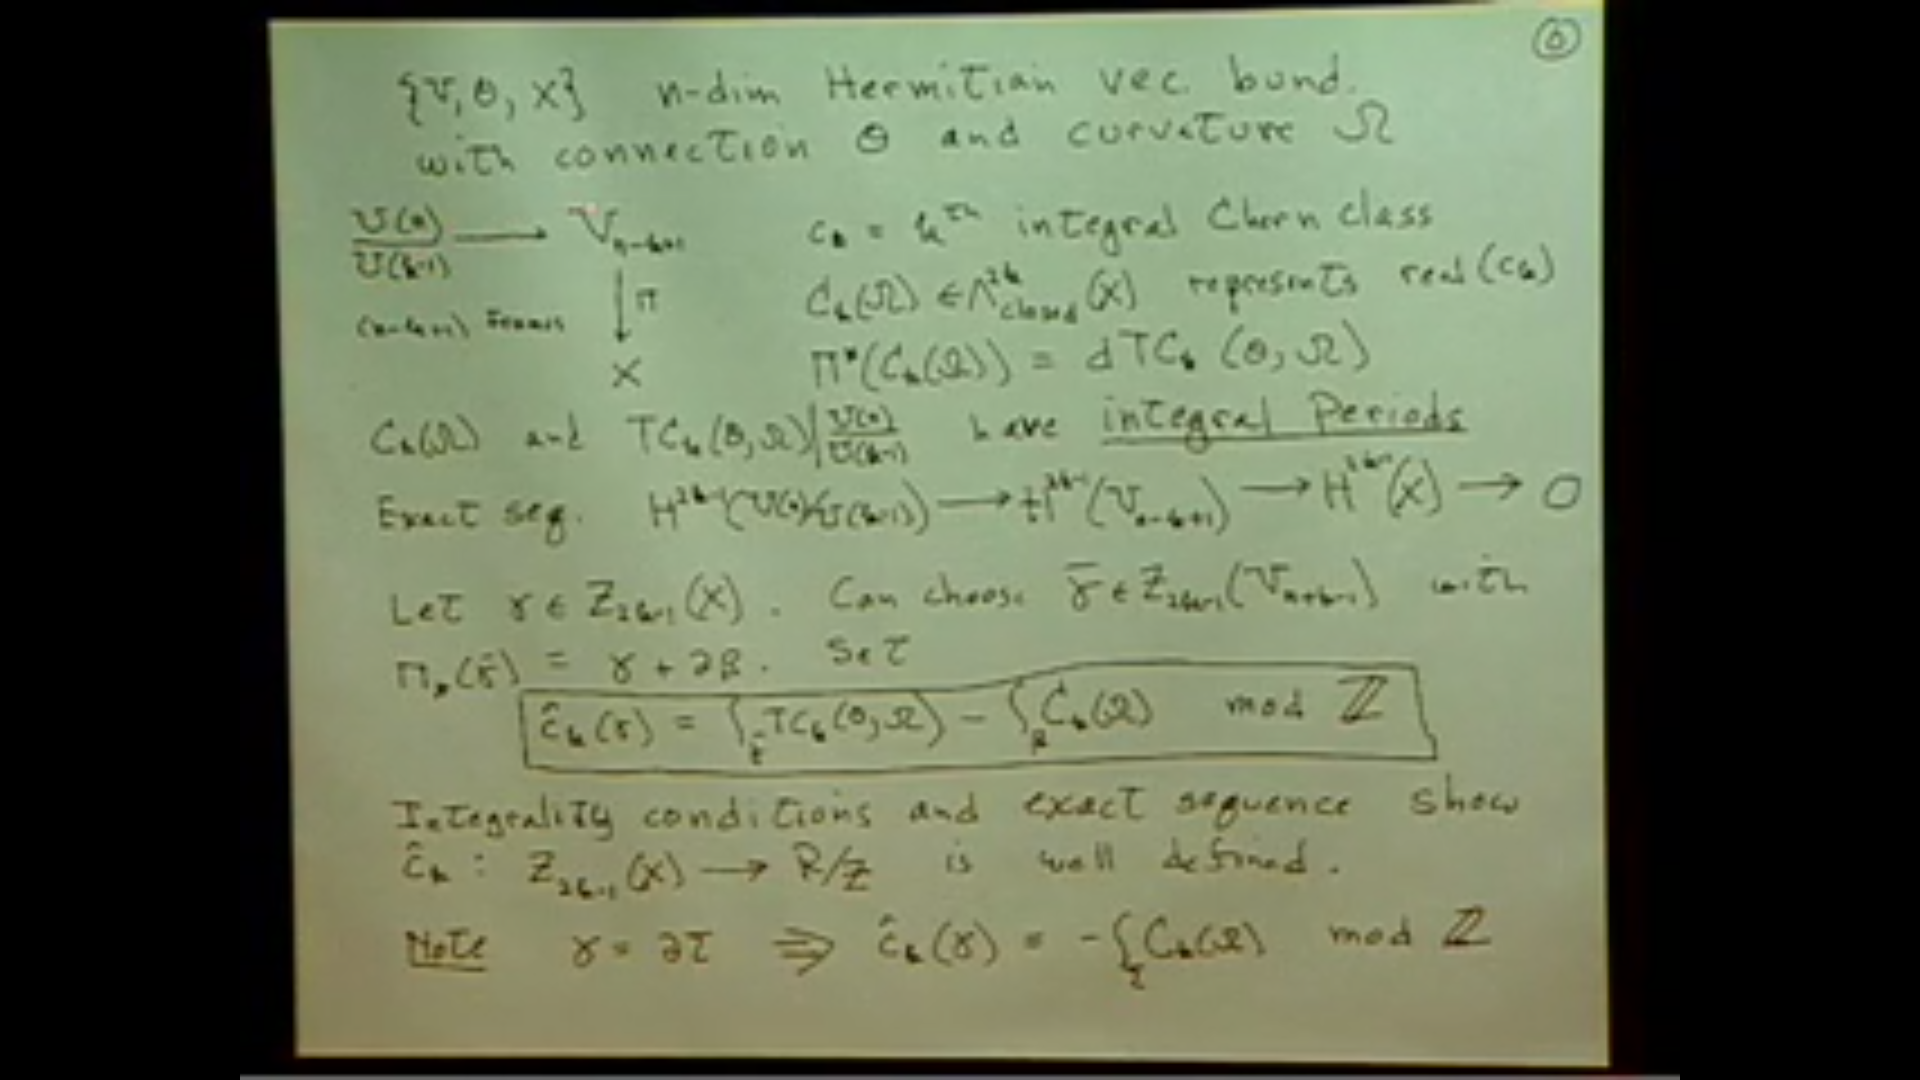 ⑥
{V, θ, X} n-dim Hermitian vec. bund.
with connection θ and curvature Ω
U(n)/U(k-1) → V_{n-k+1}
c_k = k^{th} integral Chern class
C_k(Ω) ∈ Λ^{2k}_{closed}(X) represents real(c_k)
↓ π
(n-k+1) frames
X
Π*(C_k(Ω)) = dTC_k(θ, Ω)
C_k(Ω) and TC_k(θ, Ω)|U(n)/U(k-1) have integral Periods
Exact seq. H^{2k-1}(U(n)/U(k-1)) → H^{2k-1}(V_{n-k+1}) → H^{2k-1}(X) → O
Let γ ∈ Z_{2k-1}(X). Can choose γ̄ ∈ Z_{2k-1}(V_{n+k-1}) with
Π_*(γ̄) = γ + ∂β. Set
ĉ_k(γ) = ∫_γ̄ TC_k(θ, Ω) - ∫_β C_k(Ω) mod ℤ
Integrality conditions and exact sequence show
ĉ_k : Z_{2k-1}(X) → R/Z is well defined.
Note γ = ∂τ ⇒ ĉ_k(γ) = -∫_τ C_k(Ω) mod ℤ